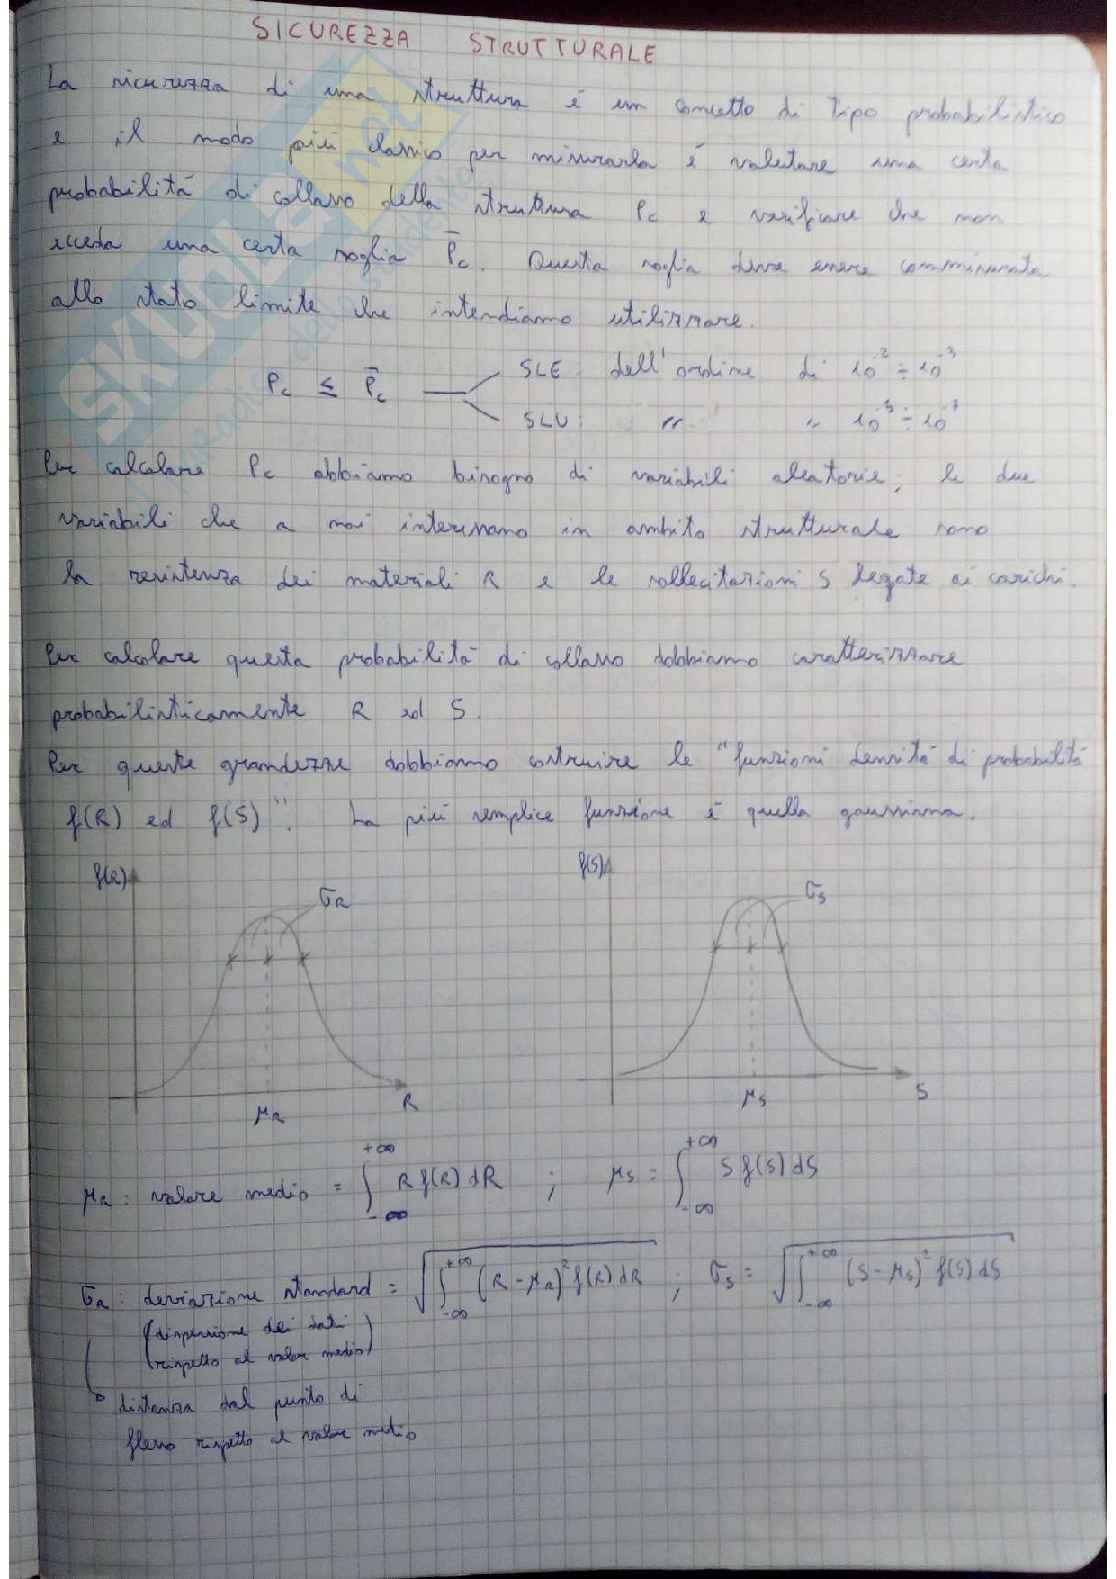 SICUREZZA STRUTTURALE
La sicurezza di una struttura è un concetto di tipo probabilistico
e il modo più classico per misurarla è valutare una certa
probabilità di collasso della struttura Pc e verificare che non
ecceda una certa soglia P̄c. Questa soglia deve essere commisurata
allo stato limite che intendiamo utilizzare.
Pc ≤ P̄c
SLE: dell'ordine di 10⁻² ÷ 10⁻³
SLU: " " 10⁻⁵ ÷ 10⁻⁷
Per calcolare Pc abbiamo bisogno di variabili aleatorie; le due
variabili che a noi interessano in ambito strutturale sono
la resistenza dei materiali R e le sollecitazioni S legate ai carichi.
Per calcolare questa probabilità di collasso dobbiamo caratterizzare
probabilisticamente R ed S.
Per queste grandezze dobbiamo costruire le "funzioni densità di probabilità
f(R) ed f(S)". La più semplice funzione è quella gaussiana.
f(R) σR μR R
f(S) σS μS S
μR: valore medio = ∫₋∞⁺∞ R f(R) dR ; μS = ∫₋∞⁺∞ S f(S) dS
σR: deviazione standard = √∫₋∞⁺∞ (R-μR)² f(R) dR ; σS = √∫₋∞⁺∞ (S-μS)² f(S) dS
(dispersione dei dati
rispetto al valor medio)
distanza dal punto di
flesso rispetto al valor medio
SKUOLA.net